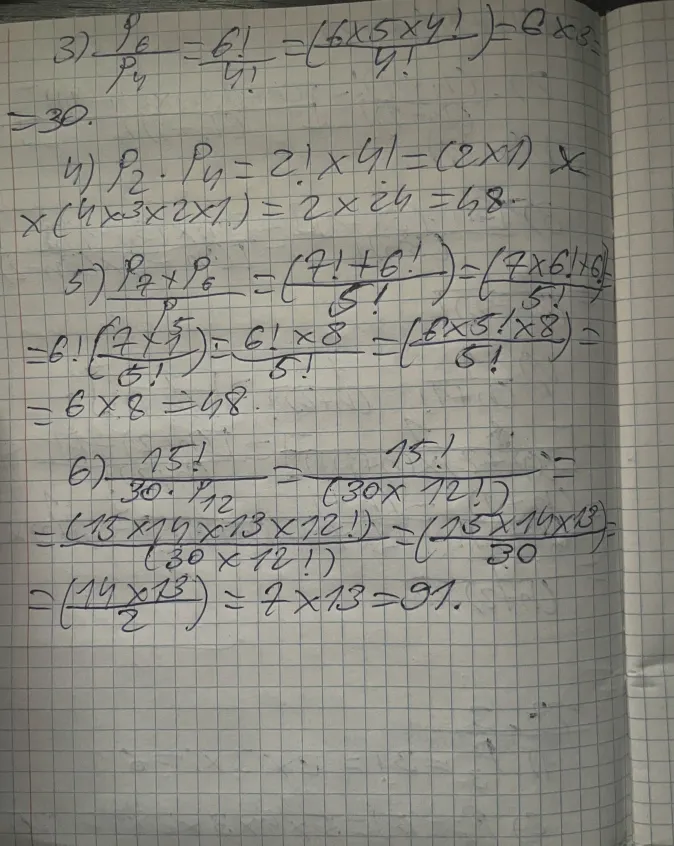 3) P₆/P₄ = 6!/4! = (6×5×4!/4!) = 6×5 =
= 30.
4) P₂ · P₄ = 2! × 4! = (2×1) ×
× (4×3×2×1) = 2 × 24 = 48.
5) P₇+P₆/P₅ = (7!+6!/5!) = (7×6!+6!/5!) =
= 6! (7+1/5!) = 6!×8/5! = (6×5!×8/5!) =
= 6 × 8 = 48.
6) 15!/30·P₁₂ = 15!/(30×12!) =
= (15×14×13×12!)/(30×12!) = (15×14×13/30) =
= (14×13/2) = 7×13 = 91.